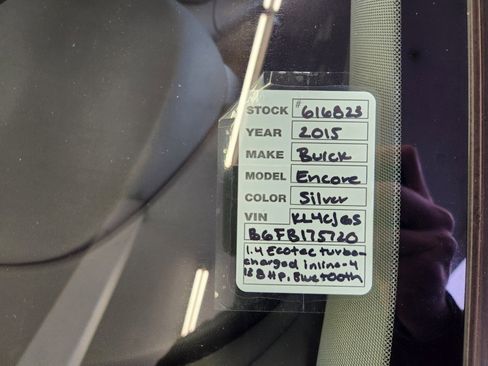 STOCK # 616823
YEAR 2015
MAKE Buick
MODEL Encore
COLOR Silver
VIN KL4CJGS
B6FB175720
1.4 Ecotec turbo-
charged inline-4
HP, Bluetooth